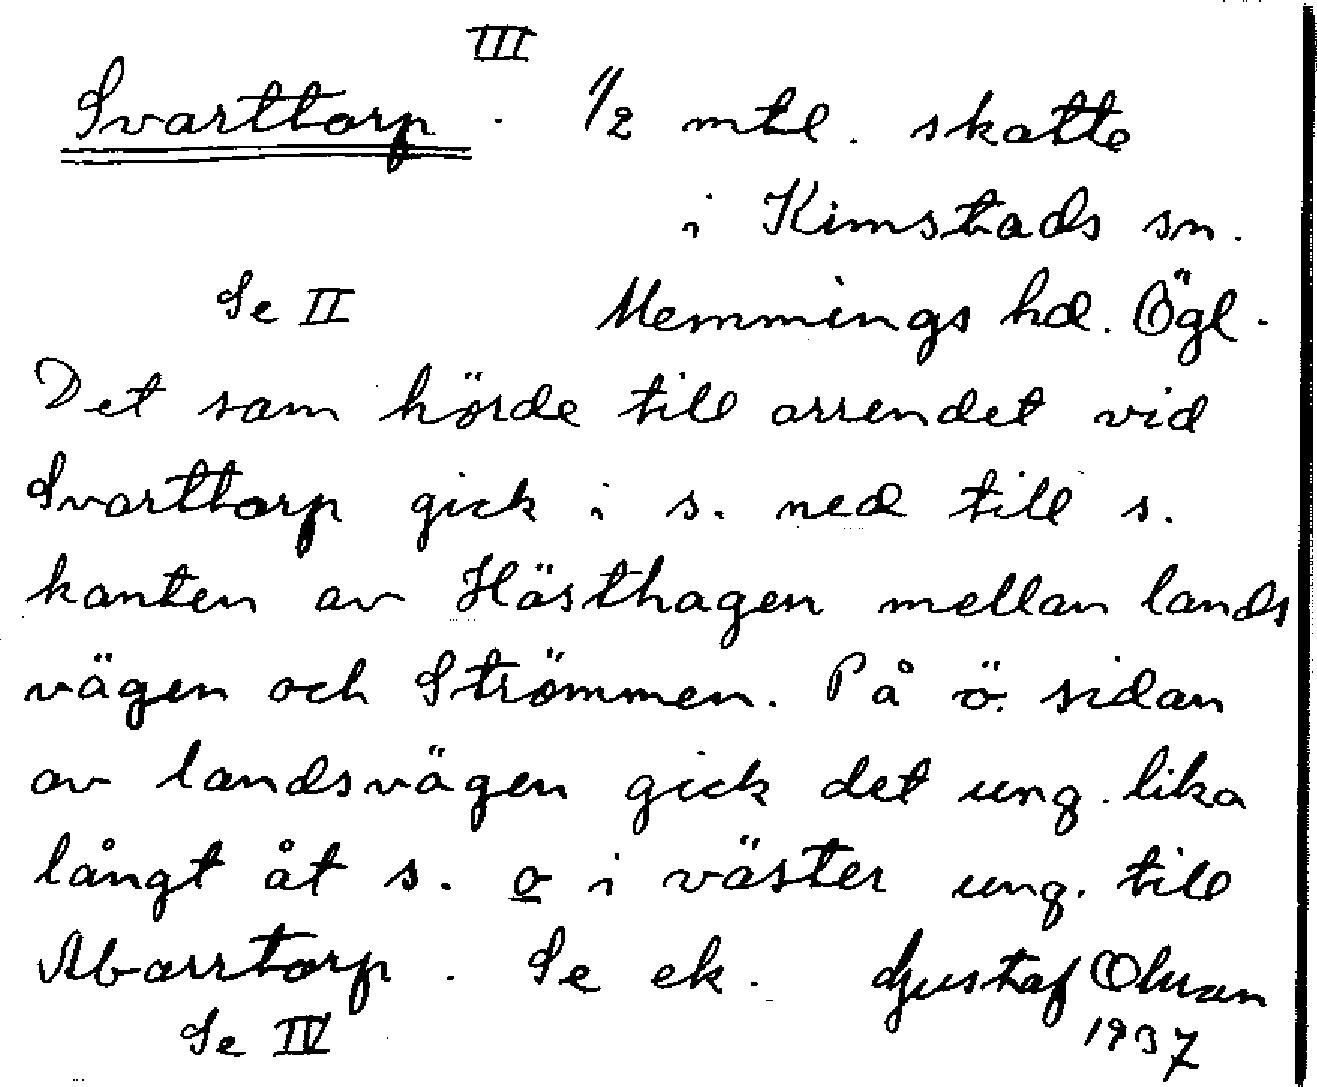 III
Svarttorp. 1/2 mtl. skatte
i Kimstads sn.
Se II Memmings hd. Ögl.
Det som hörde till arrendet vid
Svarttorp gick i s. ned till s.
kanten av Hästhagen mellan lands
vägen och Strömmen. På ö. sidan
av landsvägen gick det ung. lika
långt åt s. o i väster ung. till
Abborrtorp. Se ek. Gustaf Olsson
Se IV 1937